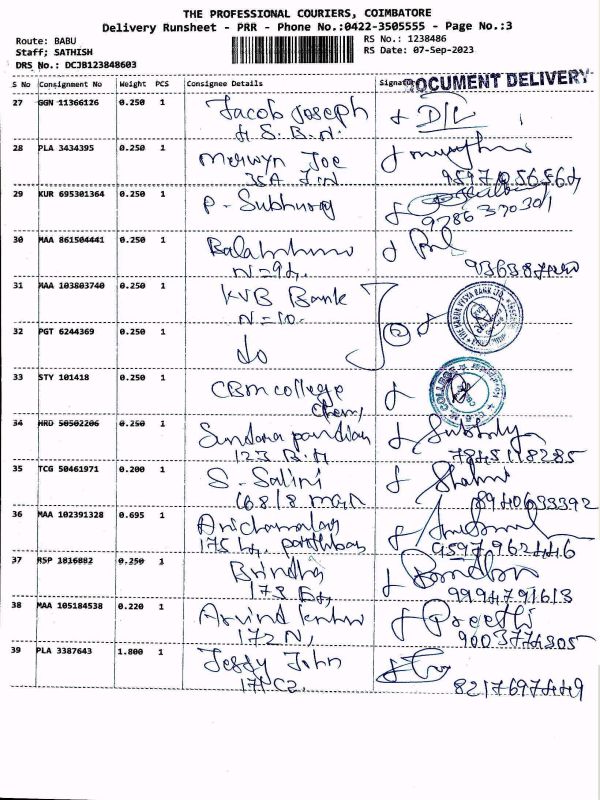 THE PROFESSIONAL COURIERS, COIMBATORE
Delivery Runsheet - PRR - Phone No.:0422-3505555 - Page No.:3
Route: BABU
RS No.: 1238486
Staff; SATHISH
RS Date: 07-Sep-2023
DRS No.: DCJB123848603
S No Consignment No Weight PCS Consignee Details Signature
DOCUMENT DELIVERY
27 GGN 11366126 0.250 1 Jacob Joseph
H.S.B.N.
28 PLA 3434395 0.250 1 Merwyn Joe
35A
9597056564
29 KUR 695301364 0.250 1 P-Subburaj
9786370301
30 MAA 861504441 0.250 1
N=94.
31 MAA 103803740 0.250 1 KVB Bank
N=10.
THE KARUR VYSYA BANK LTD.
32 PGT 6244369 0.250 1 do
2
33 STY 101418 0.250 1 CBM college
Chem,
COLLEGE
34 HRD 50502206 0.250 1 Sundara pandian
123 B.H
7845118285
35 TCG 50461971 0.200 1 S-Salini
Shalini
8940633392
36 MAA 102391328 0.695 1
175
9597962446
37 RSP 1816882 0.250 1 Brindha
173
9994791613
38 MAA 105184538 0.220 1 Arvind
172 N, Preethi
9003774305
39 PLA 3387643 1.800 1 Jessy John
171 C2.
8217697449